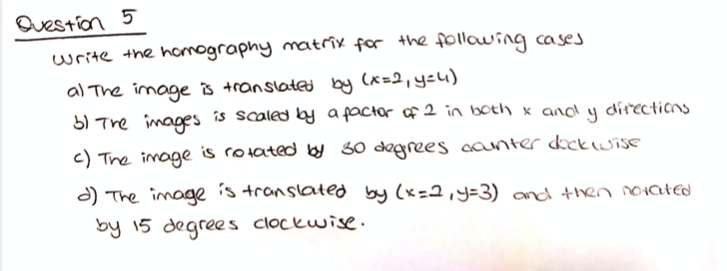 Question 5
write the homography matrix for the following cases
a) The image is translated by (x=2, y=4)
b) The images is scaled by a factor of 2 in both x and y directions
c) The image is rotated by 30 degrees counter clockwise
d) The image is translated by (x=2, y=3) and then rotated
by 15 degrees clockwise.